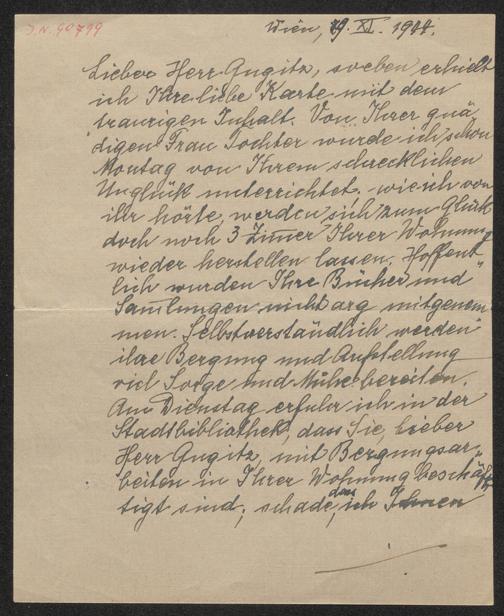 J.N. 90799
Wien, 19. XI. 1944.
Lieber Herr Gugitz, soeben erhielt
ich Ihre liebe Karte mit dem
traurigen Inhalt. Von Ihrer gnä
digen Frau Tochter wurde ich schon
Montag von Ihrem schrecklichen
Unglück unterrichtet; wie ich von
ihr hörte, werden sich zum Glück
doch noch 3 Zimer Ihrer Wohnung
wieder herstellen lassen. Hoffent
lich wurden Ihre Bücher und
Samlungen nicht arg mitgenom
men. Selbstverständlich werden
ihre Bergung und Aufstellung
viel Sorge und Mühe bereiten.
Am Dienstag erfuhr ich in der
Stadtbibliothek, dass Sie, lieber
Herr Gugitz, mit Bergungsar-
beiten in Ihrer Wohnung beschäf
tigt sind; schade, dass ich Ihnen